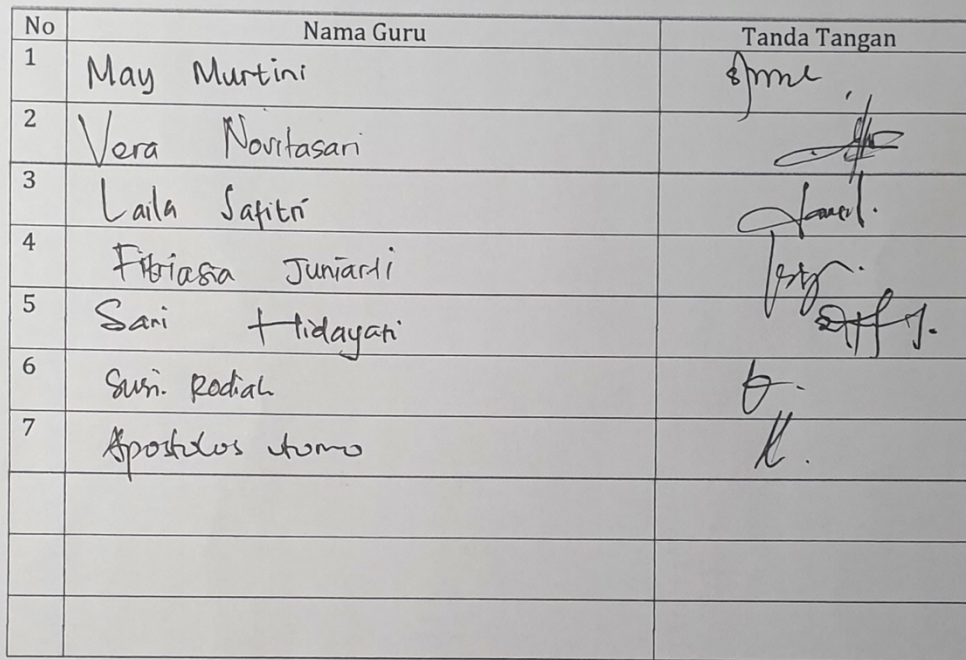 No Nama Guru Tanda Tangan
1 May Murtini
2 Vera Novitasari
3 Laila Safitri
4 Fibriasia Juniarti
5 Sari Hidayati
6 Susi. Rodiah
7 Apostolos utomo